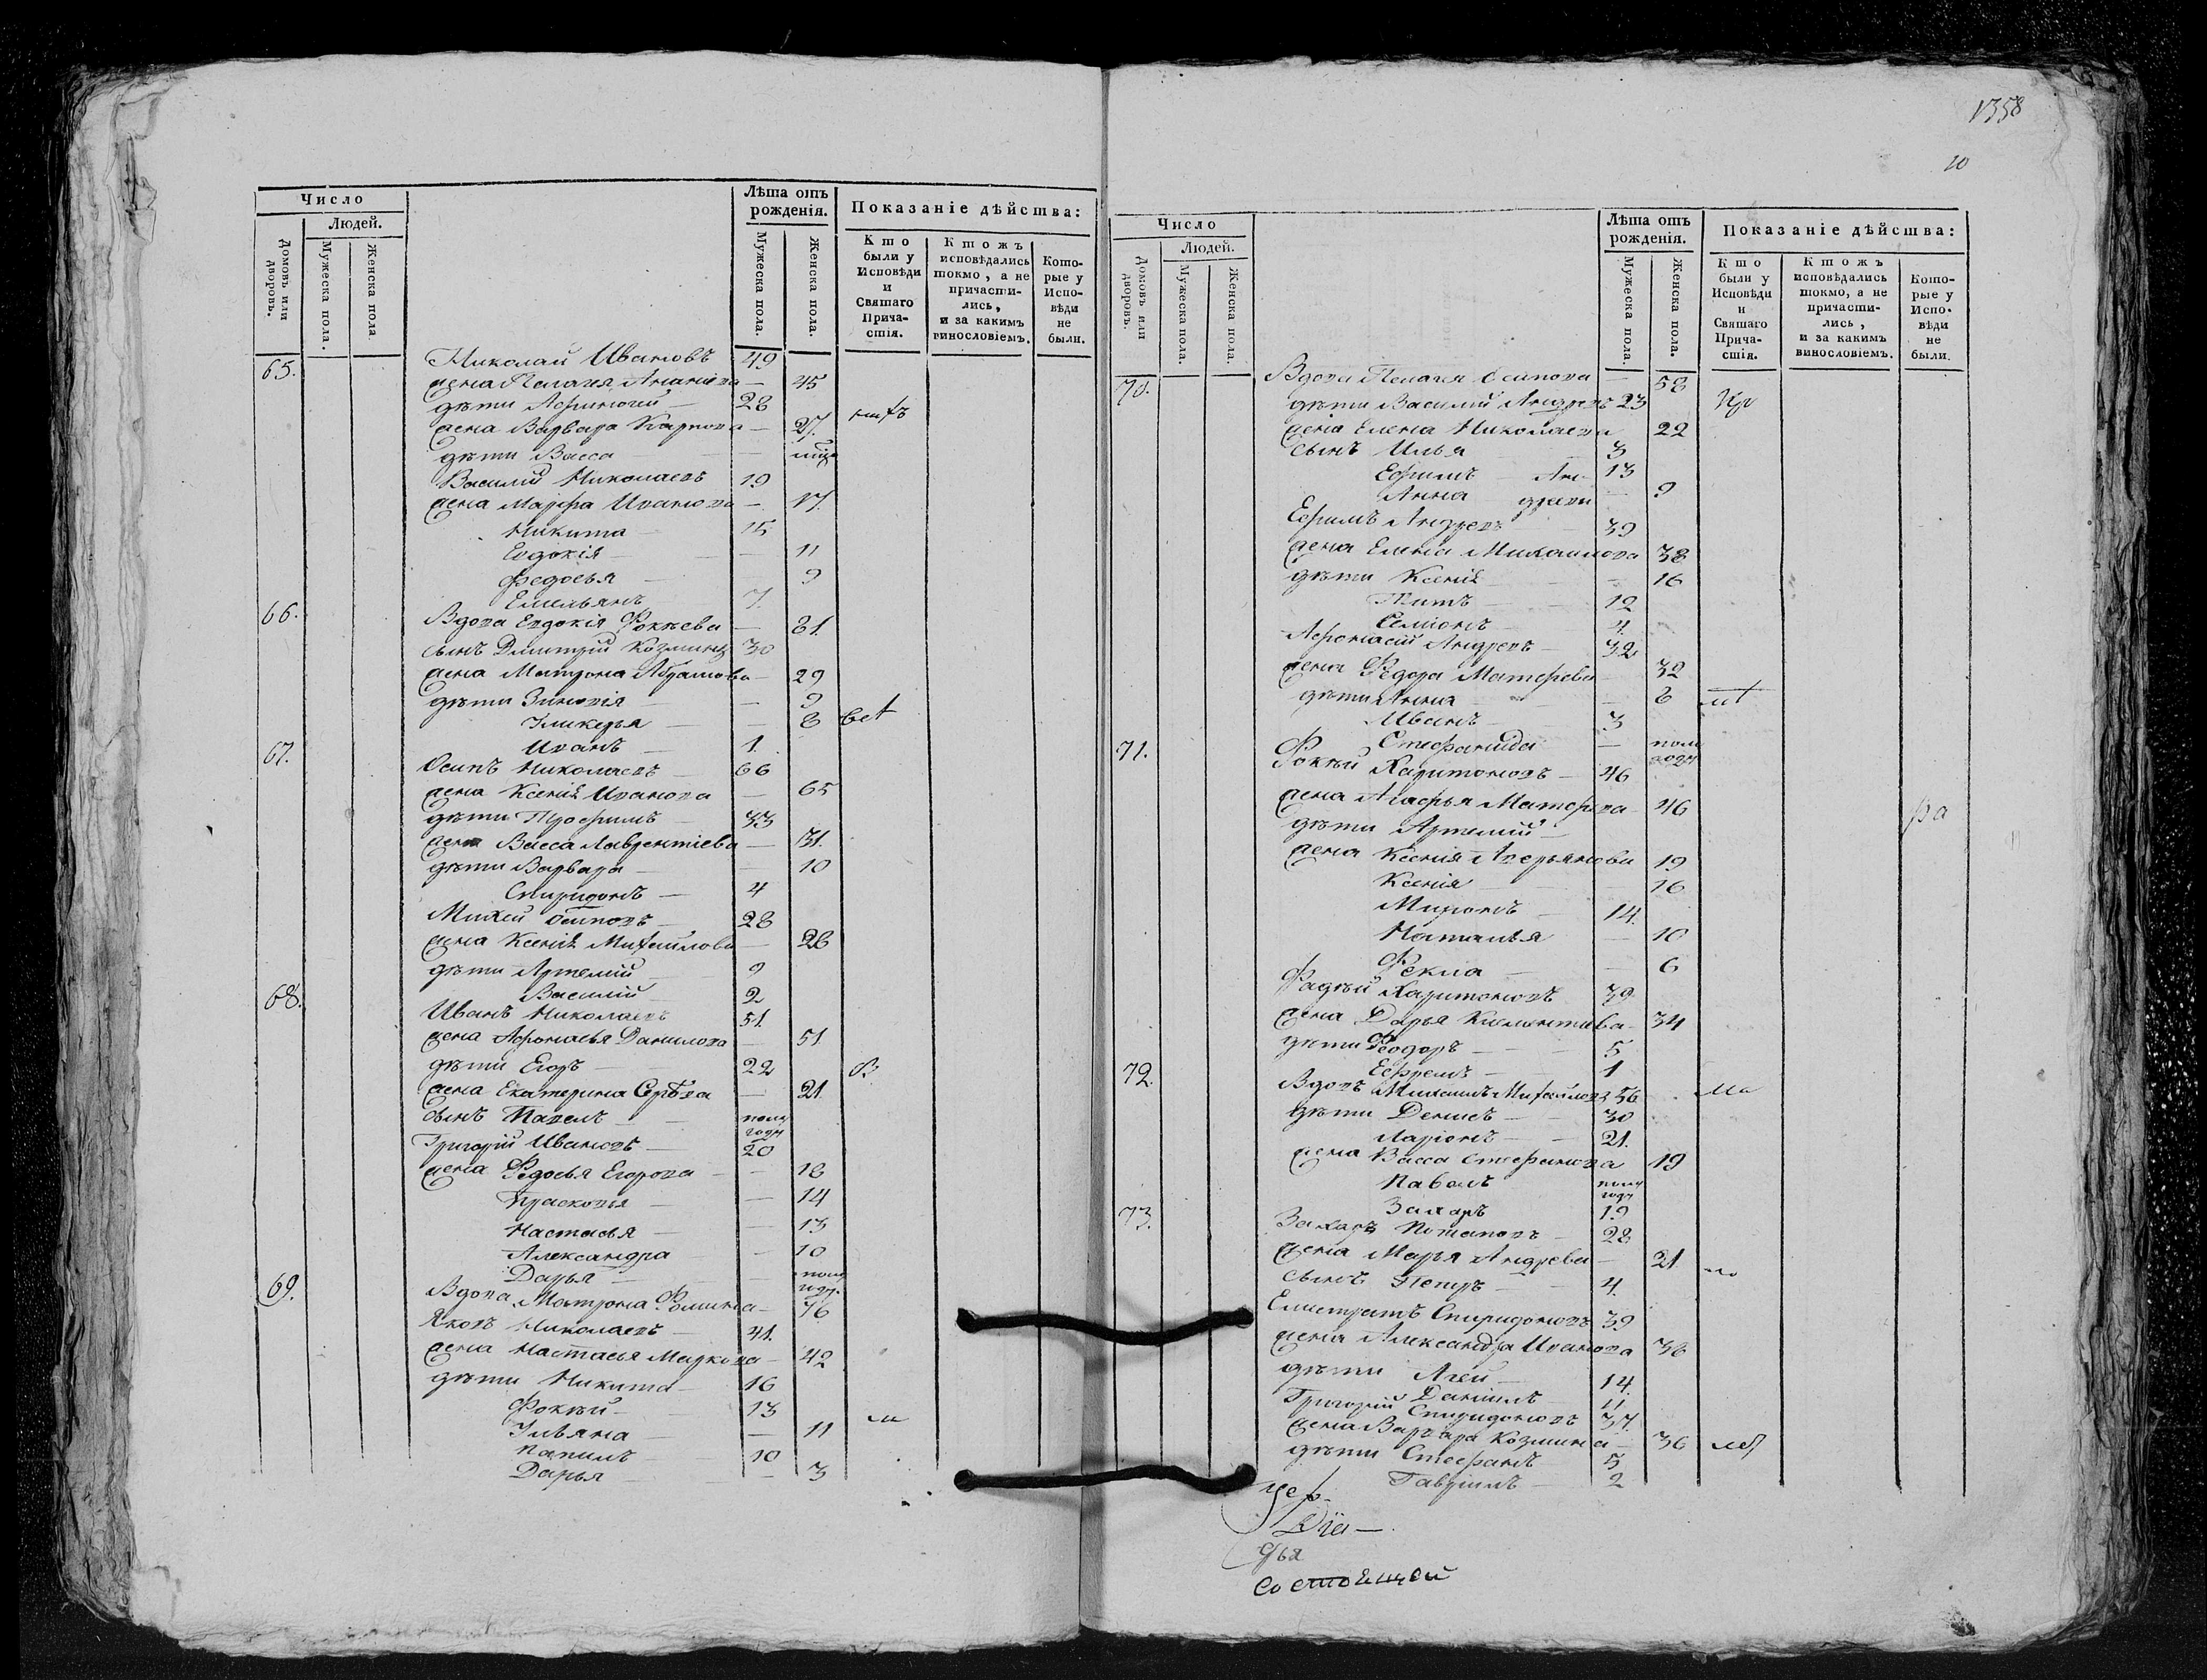 Число
Людей.
Домовъ или дворовъ.
Мужеска пола.
Женска пола.
Лѣта отъ рожденія.
Мужеска пола.
Женска пола.
Показаніе дѣйства:
Кто были у Исповѣди и Святаго Причастія.
Ктожъ исповѣдались токмо, а не причастились, и за какимъ винословіемъ.
Которые у Исповѣди не были.
65. Николай Ивановъ 49
жена Пелагея Ананіева — 45
дѣти 28
жена Варвара Карпова — 27
дѣти Васса —
Василій Николаевъ 19
жена Марфа Иванова — 17
Никита — 15
Евдокія — 11
Федосья — 9
Емельянъ 7
66. Вдова Евдокія Фокѣева — 81
сынъ Дмитрій Козминъ 30
жена Матрона Абрамова — 29
дѣти Зиновія — 9
Гликерья — 8
Иванъ — 1
67. Осипъ Николаевъ — 66
жена Ксенія Иванова — 65
дѣти Трофимъ — 33
жена Васса Лаврентіева — 31
дѣти Варвара — 10
Спиридонъ — 4
Михей Осиповъ — 28
жена Ксенія Михайлова — 28
дѣти Артемій 9
Василій 2
68. Иванъ Николаевъ 51
жена Афонасья Данилова — 51
дѣти Егоръ — 22
жена Екатерина — 21
сынъ Павелъ — полу году
Григорій Ивановъ — 20
жена Федосья Егорова — 18
Прасковья — 14
Настасья — 13
Александра — 10
Дарья — полу году
69. Вдова Матрона Фомина — 76
Яковъ Николаевъ — 41
жена Настасья Маркова — 42
дѣти Никита — 16
Фокѣй — 13
Ульяна — 11
10
Дарья — 3
1358
20
Число
Людей.
Домовъ или дворовъ.
Мужеска пола.
Женска пола.
Лѣта отъ рожденія.
Мужеска пола.
Женска пола.
Показаніе дѣйства:
Кто были у Исповѣди и Святаго Причастія.
Ктожъ исповѣдались токмо, а не причастились, и за какимъ винословіемъ.
Которые у Исповѣди не были.
70. Вдова Пелагея Осипова — 58
дѣти Василій Андревъ 23
жена Елена Николаева 22
сынъ Илья 3
Ефимъ — Ан- 13
Анна дреевы — 9
Ефимъ Андревъ 39
жена Елена Михайлова 38
дѣти Ксенія — 16
Титъ — 12
Семіонъ — 4
Афонасій Андревъ — 32
жена Федора Матфеева 32
дѣти Анна — 8
Иванъ — 3
Стефанида — полу году
71. Фокѣй Харитоновъ — 46
жена Агафья Матфеева — 46
дѣти Артемій —
жена Ксенія Аверьянова 19
Ксенія 16
Миронъ 14
Наталья — 10
Фекла — 6
Фадѣй Харитоновъ 39
жена Дарья Климентіева — 34
дѣти Феодоръ — 5
Ефремъ — 1
72. Вдовъ Михайловъ 56
дѣти Денисъ — 30
Ларіонъ — 21
жена Васса Стефанова 19
Павелъ полу году
Захаръ 19
73. Захаръ Потаповъ — 28
жена Марья Андреева — 21
сынъ Петръ — 4
Елистратъ Спиридоновъ 39
жена Александра Иванова 38
дѣти Агей — 14
Даніилъ — 11
Григорій Спиридоновъ 37
жена Варвара Козмина — 36
дѣти Стефанъ — 5
Гавріилъ — 2